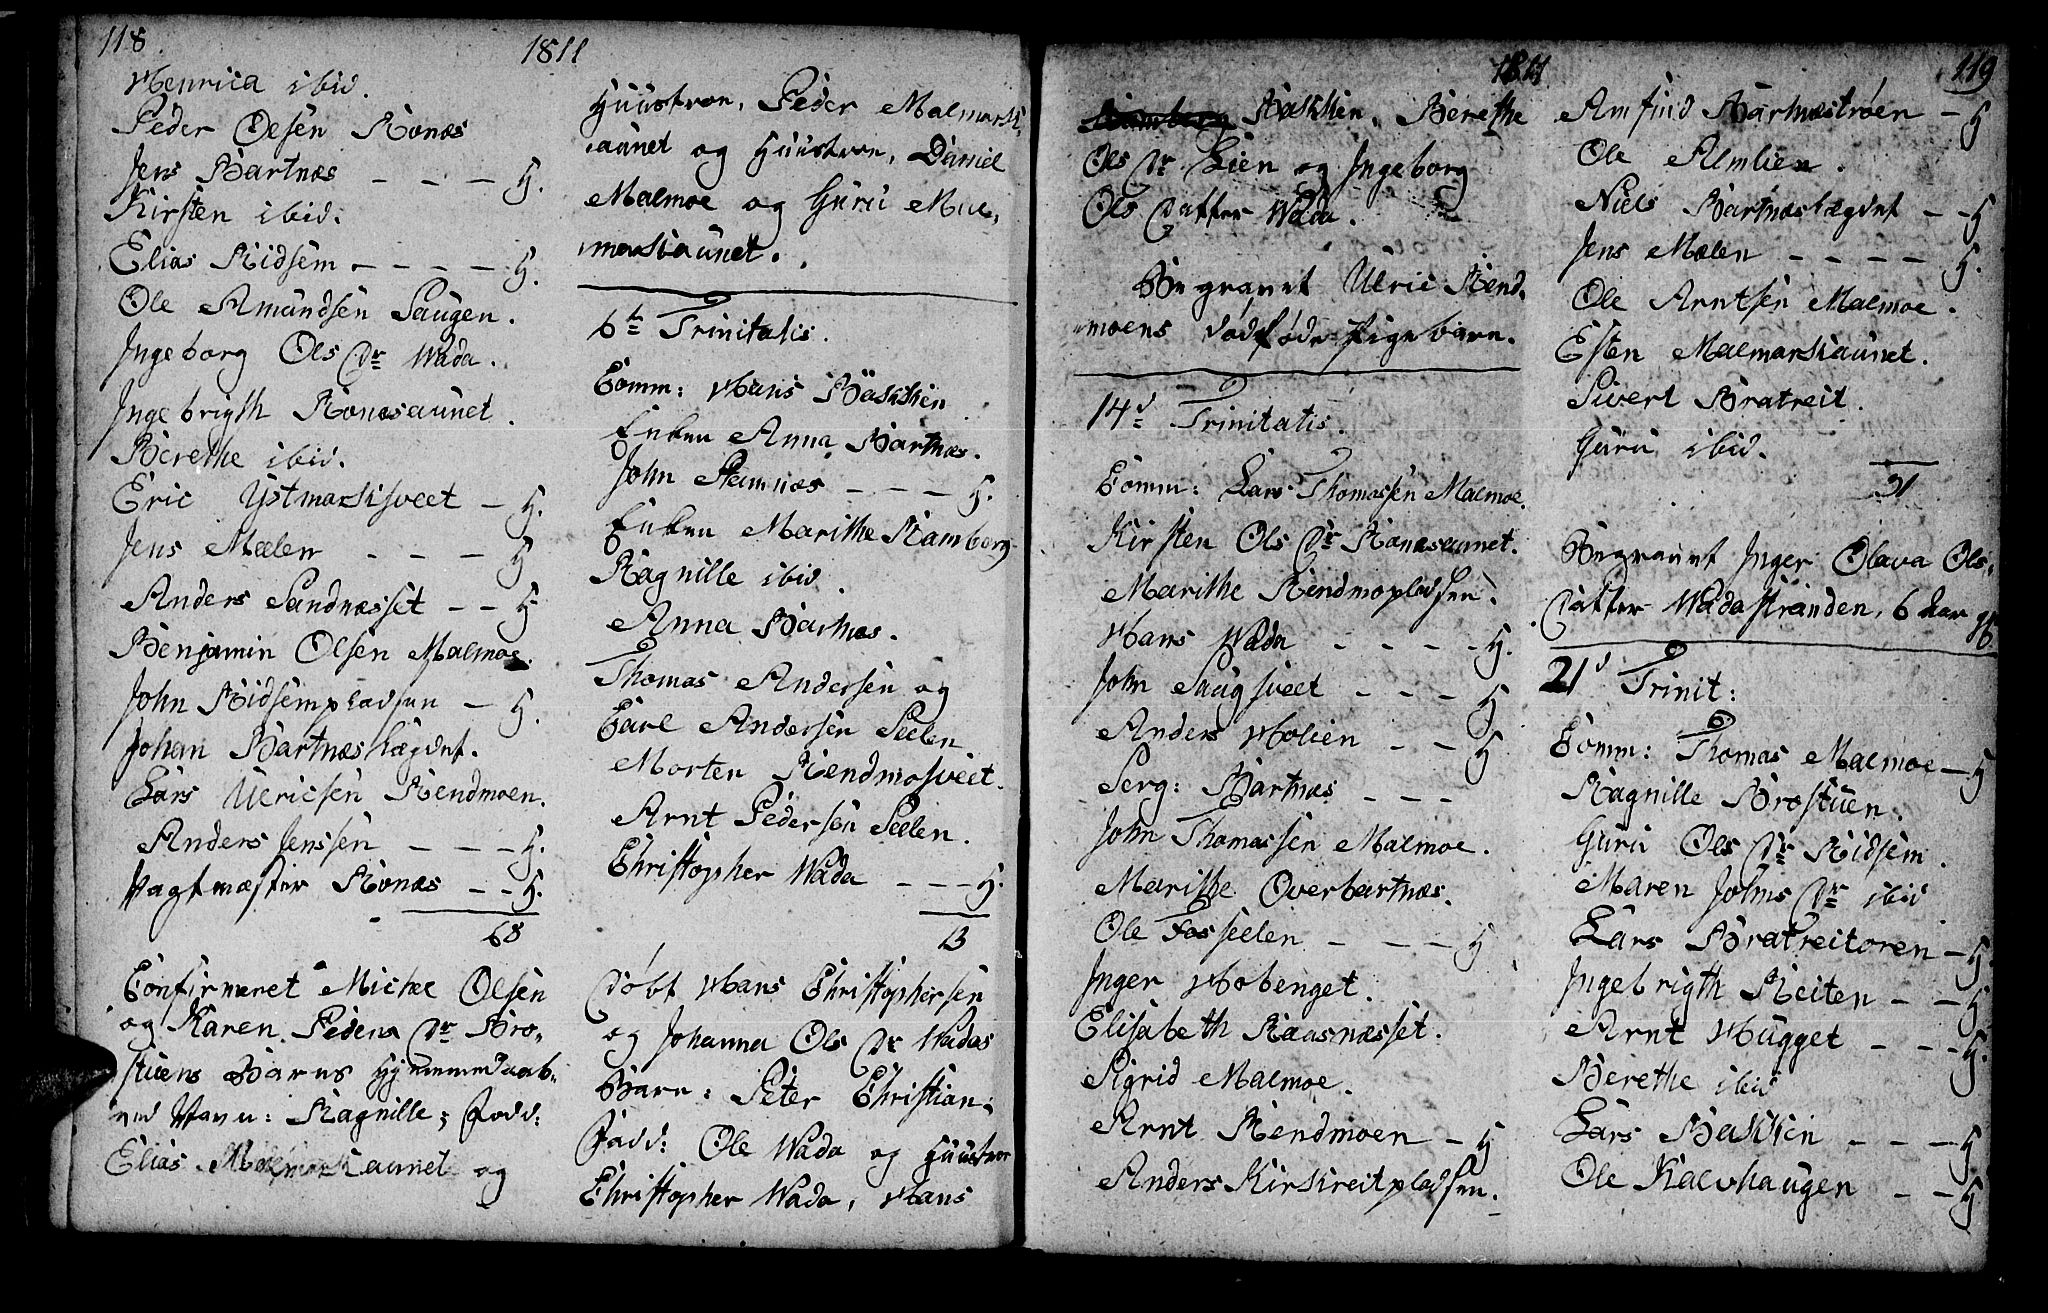 118.
1811
Henrica ibid.
Peder Olsen Ronæs
Jens Bartnæs - - - - H.
Kirsten ibid.
Elias Ridsem - - - - - H.
Ole Amundsen Saugen.
Ingeborg Ols Dr Wada.
Ingebrigth Ronæsaunet.
Berethe ibid.
Eric Ystmarksveet - H.
Jens Mælen - - - H
Anders Sandnæsset - - H.
Benjamin Olsen Malmoe.
John Ridsempladsen - H.
Johan Bartnæslægdet.
Lars Ulricsen Rendmoen.
Anders Jenssen - - - - H.
Vagtmæster Ronæs - - H.
68
Confirmeret Michel Olsen
og Karen Peders Dr Bro-
stuens Barns Hjemmedaab
ved Navn: Ragnille; Fadd:
Elias Malmarkaunet og
Huustroe, Peder Malmark-
aunet og Huustroe, Daniel
Malmoe og Guru Mal-
markaunet.
6te Trinitatis.
Comm: Hans Bakken
Enken Anna Bartnæs.
John Stamnæs - - - - H.
Enken Marithe Ramberg
Ragnille ibid.
Anna Bartnæs.
Thomas Andersen og
Carl Andersen Seelen.
Morten Rendmosveet.
Arnt Pedersen Seelen.
Christopher Wada - - - H.
13
Døbt Hans Christophersen
og Johanna Ols Dr Wadas
Barn: Peter Christian:
Fadd: Ole Wada og Huustroe
Christopher Wada, Hans
1811
119
Bakken, Berethe
Ols Dr Lien og Ingeborg
Ols Datter Wada.
Begravet Ulric Rend-
moens dødfødte Pigebarn.
14d Trinitatis.
Comm: Lars Thomassen Malmoe.
Kirsten Ols Dr Ronæsaunet.
Marithe Rendmopladsen.
Hans Wada - - - - H.
John Saugsveet - - - H
Anders Holien - - H
Serg: Bartnæs - - -
John Thomassen Malmoe.
Marithe Overbartnæs.
Ole Fosseelen - - - H
Inger Hobenget.
Elisabeth Kaasnæsset.
Sigrid Malmoe.
Arnt Rendmoen - H
Anders Kirkreitpladsen.
Amfind Bartnæstrøen - H
Ole Almlien.
Niels Bartnæslægdet - - H
Jens Mælen - - - - H.
Ole Arntsen Malmoe.
Esten Malmarkaunet.
Sivert Bratreit.
Guru ibid.
21
Begravet Inger Olava Ols-
Datter Wadastranden, 6 Aar gl.
21d Trinit:
Comm: Thomas Malmoe - H
Ragnille Brostuen.
Guru Ols Dr Ridsem.
Maren Johns Dr ibid
Lars Bratreitoren - H.
Ingebrigth Reiten - - H
Arnt Hugget - - - H.
Berethe ibid
Lars Bakken - - - H
Ole Kalvhaugen - - H